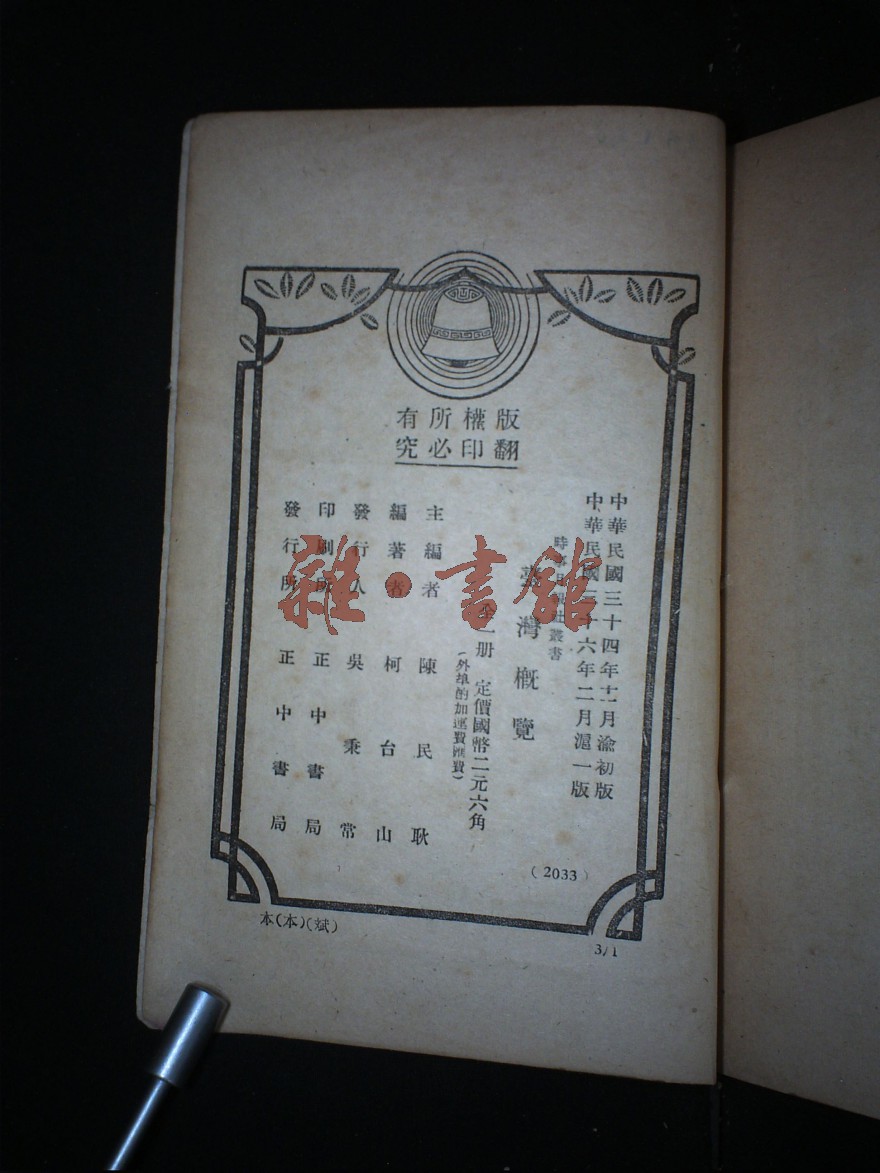 版權所有
翻印必究
中華民國三十四年十二月渝初版
中華民國三十六年二月滬一版
叢書
臺灣概覽
全一册 定價國幣二元六角
(外埠酌加運費匯費)
主編者 陳民耿
編著者 柯台山
發行人 吳秉常
印刷所 正中書局
發行所 正中書局
(2033)
本(本)(斌)
3/1
雜·書館